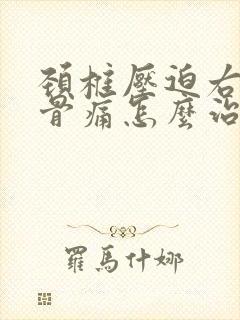 頚椎壓迫右
骨痛怎麼治
羅馬什娜